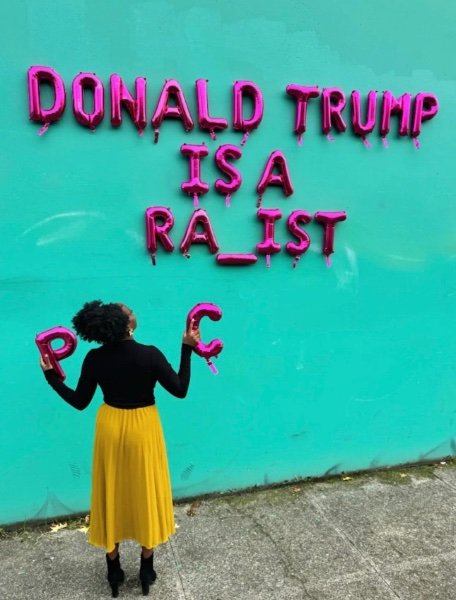 DONALD TRUMP
IS A
RA_IST
P C